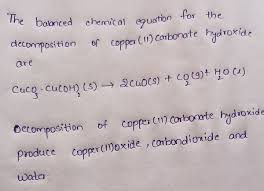 The balanced chemical equation for the
decomposition of copper(11) carbonate hydroxide
are
CuCO3.Cu(OH)2(s) → 2CuO(s) + CO2(g)+ H2O(l)
Decomposition of copper(11) carbonate hydroxide
produce copper(11)oxide, carbondioxide and
water.